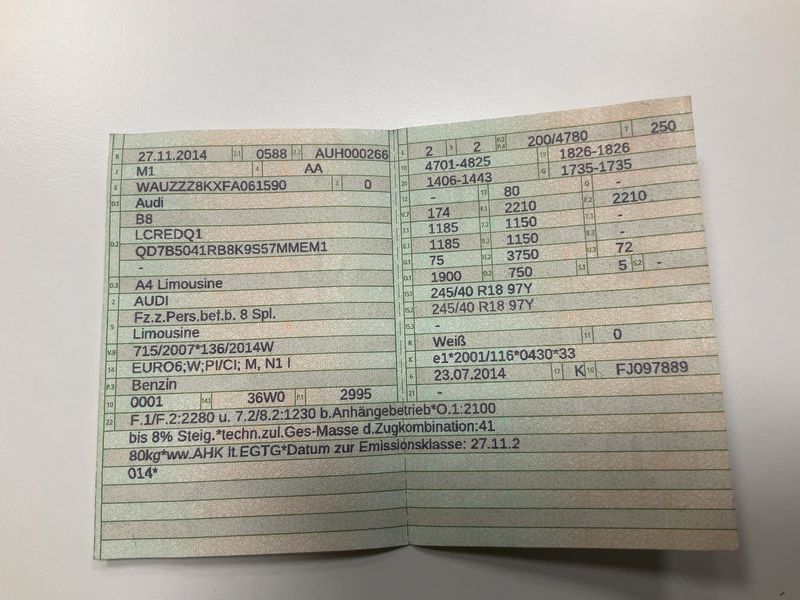 B 27.11.2014 2.1 0588 2.2 AUH000266
J M1 4 AA
E WAUZZZ8KXFA061590 3 0
D.1 Audi
B8
D.2 LCREDQ1
QD7B5041RB8K9S57MMEM1
-
D.3 A4 Limousine
2 AUDI
5 Fz.z.Pers.bef.b. 8 Spl.
Limousine
V.9 715/2007*136/2014W
14 EURO6;W;PI/CI; M, N1 I
P.3 Benzin
10 0001 14.1 36W0 P.1 2995
22 F.1/F.2:2280 u. 7.2/8.2:1230 b.Anhängebetrieb*O.1:2100
bis 8% Steig.*techn.zul.Ges-Masse d.Zugkombination:41
80kg*ww.AHK lt.EGTG*Datum zur Emissionsklasse: 27.11.2
014*
L 2 9 2 P.2 P.4 200/4780 T 250
18 4701-4825 19 1826-1826
20 1406-1443 G 1735-1735
12 - 13 80 Q -
V.7 174 F.1 2210 F.2 2210
7.1 1185 7.2 1150 7.3 -
8.1 1185 8.2 1150 8.3 -
U.1 75 U.2 3750 U.3 72
O.1 1900 O.2 750 S.1 5 S.2 -
15.1 245/40 R18 97Y
15.2 245/40 R18 97Y
15.3 -
R Weiß 11 0
K e1*2001/116*0430*33
6 23.07.2014 17 K 16 FJ097889
21 -